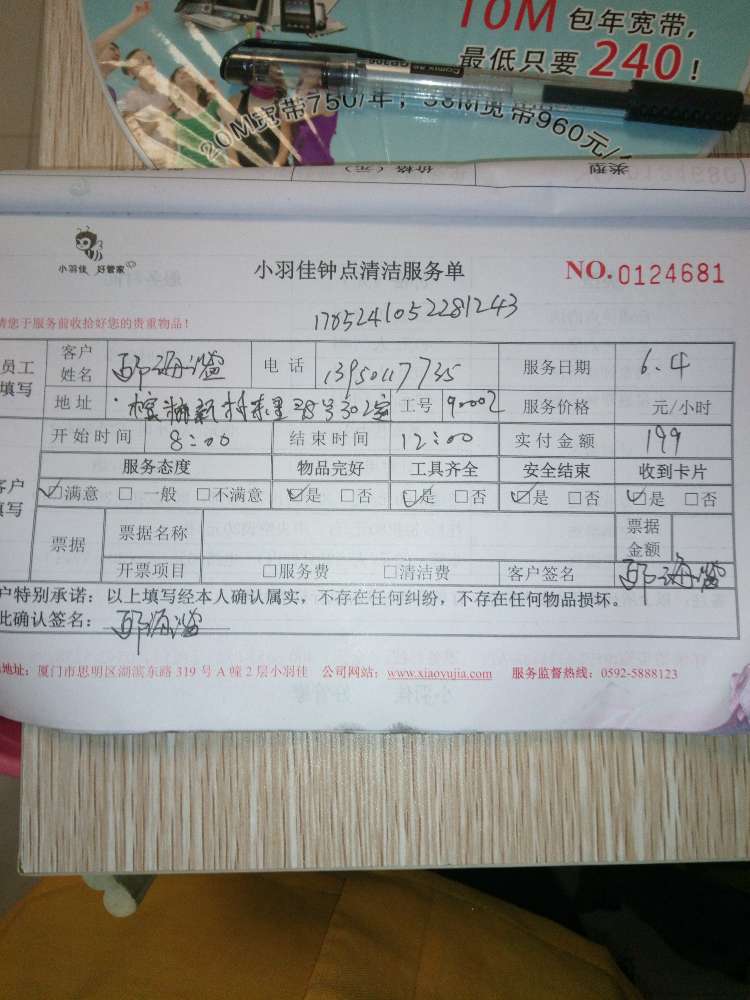 10M 包年宽带,
最低只要 240!
20M宽带750/年;
宽带960元/
类型
价格(元)
小羽佳 好管家
小羽佳钟点清洁服务单
NO. 0124681
请您于服务前收拾好您的贵重物品!
1705241052281243
员工填写
客户姓名
电话 13950117735
服务日期 6.4
地址
302室
工号 90002
服务价格 元/小时
开始时间 8:00
结束时间 12:00
实付金额 199
客户填写
服务态度 物品完好 工具齐全 安全结束 收到卡片
☑满意 □一般 □不满意 ☑是 □否 ☑是 □否 ☑是 □否 ☑是 □否
票据
票据名称
票据金额
开票项目 □服务费 □清洁费 客户签名
户特别承诺:以上填写经本人确认属实,不存在任何纠纷,不存在任何物品损坏。
此确认签名:
地址:厦门市思明区湖滨东路 319 号 A 幢 2 层小羽佳 公司网站:www.xiaoyujia.com 服务监督热线:0592-5888123